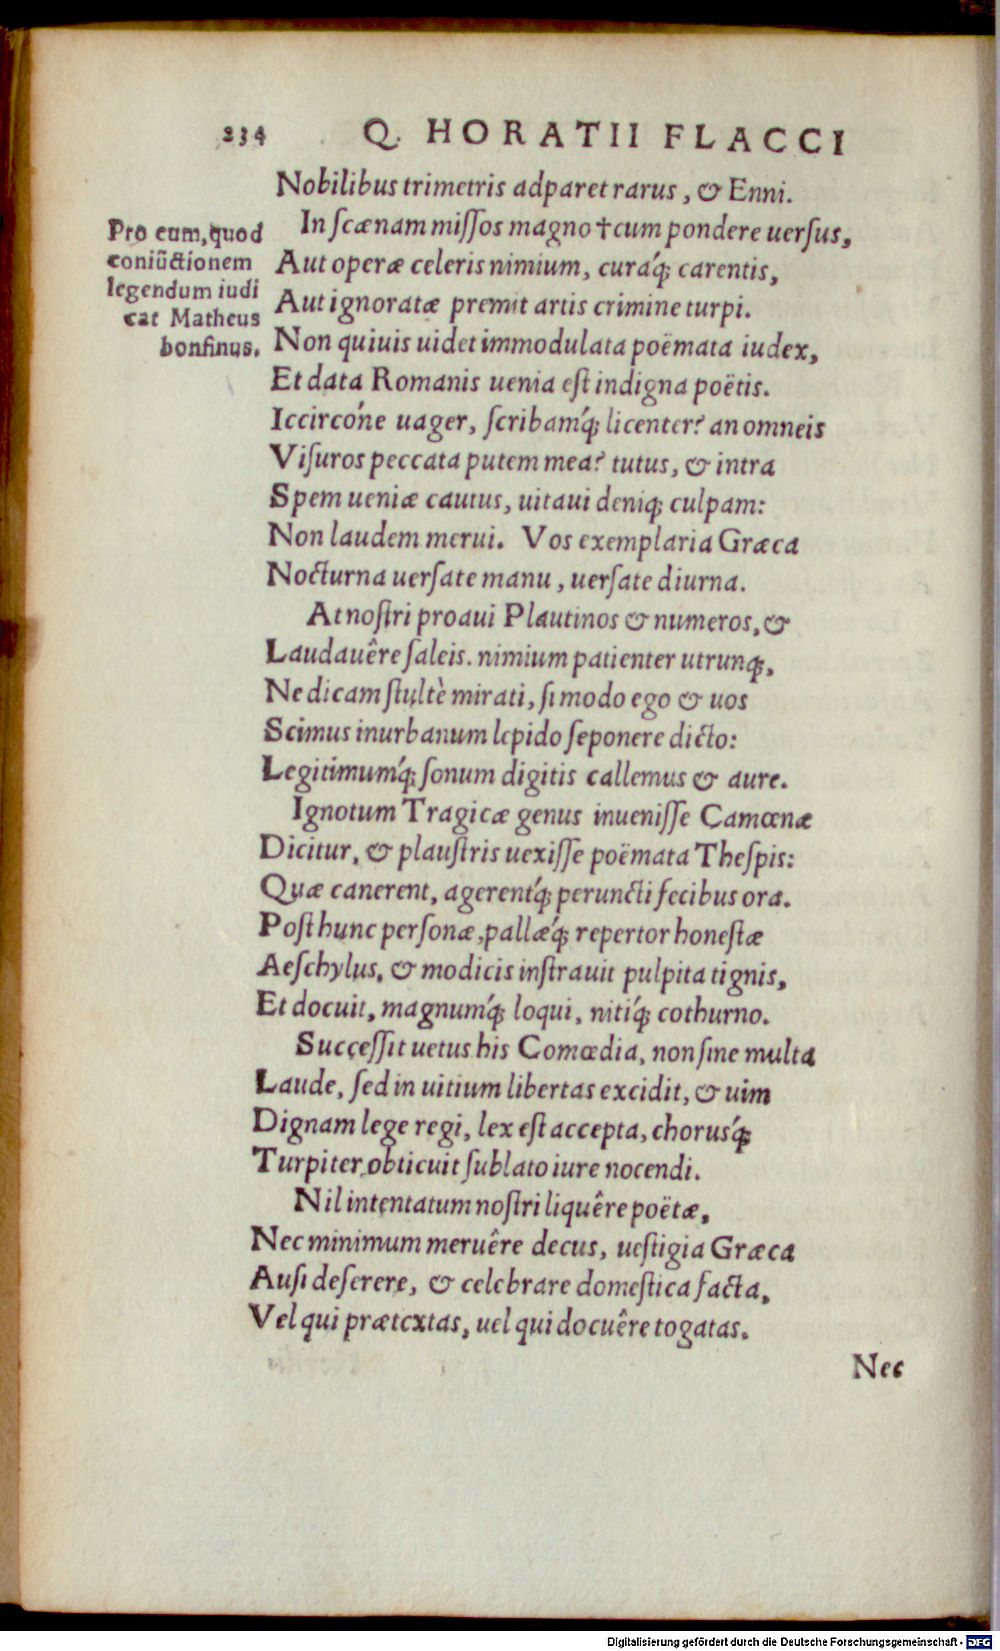 234 Q. HORATII FLACCI
Nobilibus trimetris adparet rarus, & Enni.
In ſcænam miſſos magno † cum pondere uerſus,
Aut operæ celeris nimium, curaq́; carentis,
Aut ignoratæ premit artis crimine turpi.
Non quiuis uidet immodulata poëmata iudex,
Et data Romanis uenia eſt indigna poëtis.
Iccircóne uager, ſcribamq́; licenter? an omneis
Viſuros peccata putem mea? tutus, & intra
Spem ueniæ cautus, uitaui deniq; culpam:
Non laudem merui. Vos exemplaria Græca
Nocturna uerſate manu, uerſate diurna.
At noſtri proaui Plautinos & numeros, &
Laudauêre ſaleis. nimium patienter utrunq;,
Ne dicam ſtultè mirati, ſi modo ego & uos
Scimus inurbanum lepido ſeponere dicto:
Legitimumq́; ſonum digitis callemus & aure.
Ignotum Tragicæ genus inueniſſe Camœnæ
Dicitur, & plauſtris uexiſſe poëmata Theſpis:
Quæ canerent, agerentq́; peruncti fecibus ora.
Poſt hunc perſonæ, pallæq́; repertor honeſtæ
Aeſchylus, & modicis inſtrauit pulpita tignis,
Et docuit, magnumq́; loqui, nitiq́; cothurno.
Succeſſit uetus his Comœdia, non ſine multa
Laude, ſed in uitium libertas excidit, & uim
Dignam lege regi, lex eſt accepta, chorusq́;
Turpiter obticuit ſublato iure nocendi.
Nil intentatum noſtri liquêre poëtæ,
Nec minimum meruêre decus, ueſtigia Græca
Auſi deſerere, & celebrare domeſtica facta,
Vel qui prætextas, uel qui docuêre togatas.
Nec
Pro eum, quod
coniūctionem
legendum iudi
cat Matheus
bonfinus.
Digitalisierung gefördert durch die Deutsche Forschungsgemeinschaft - DFG